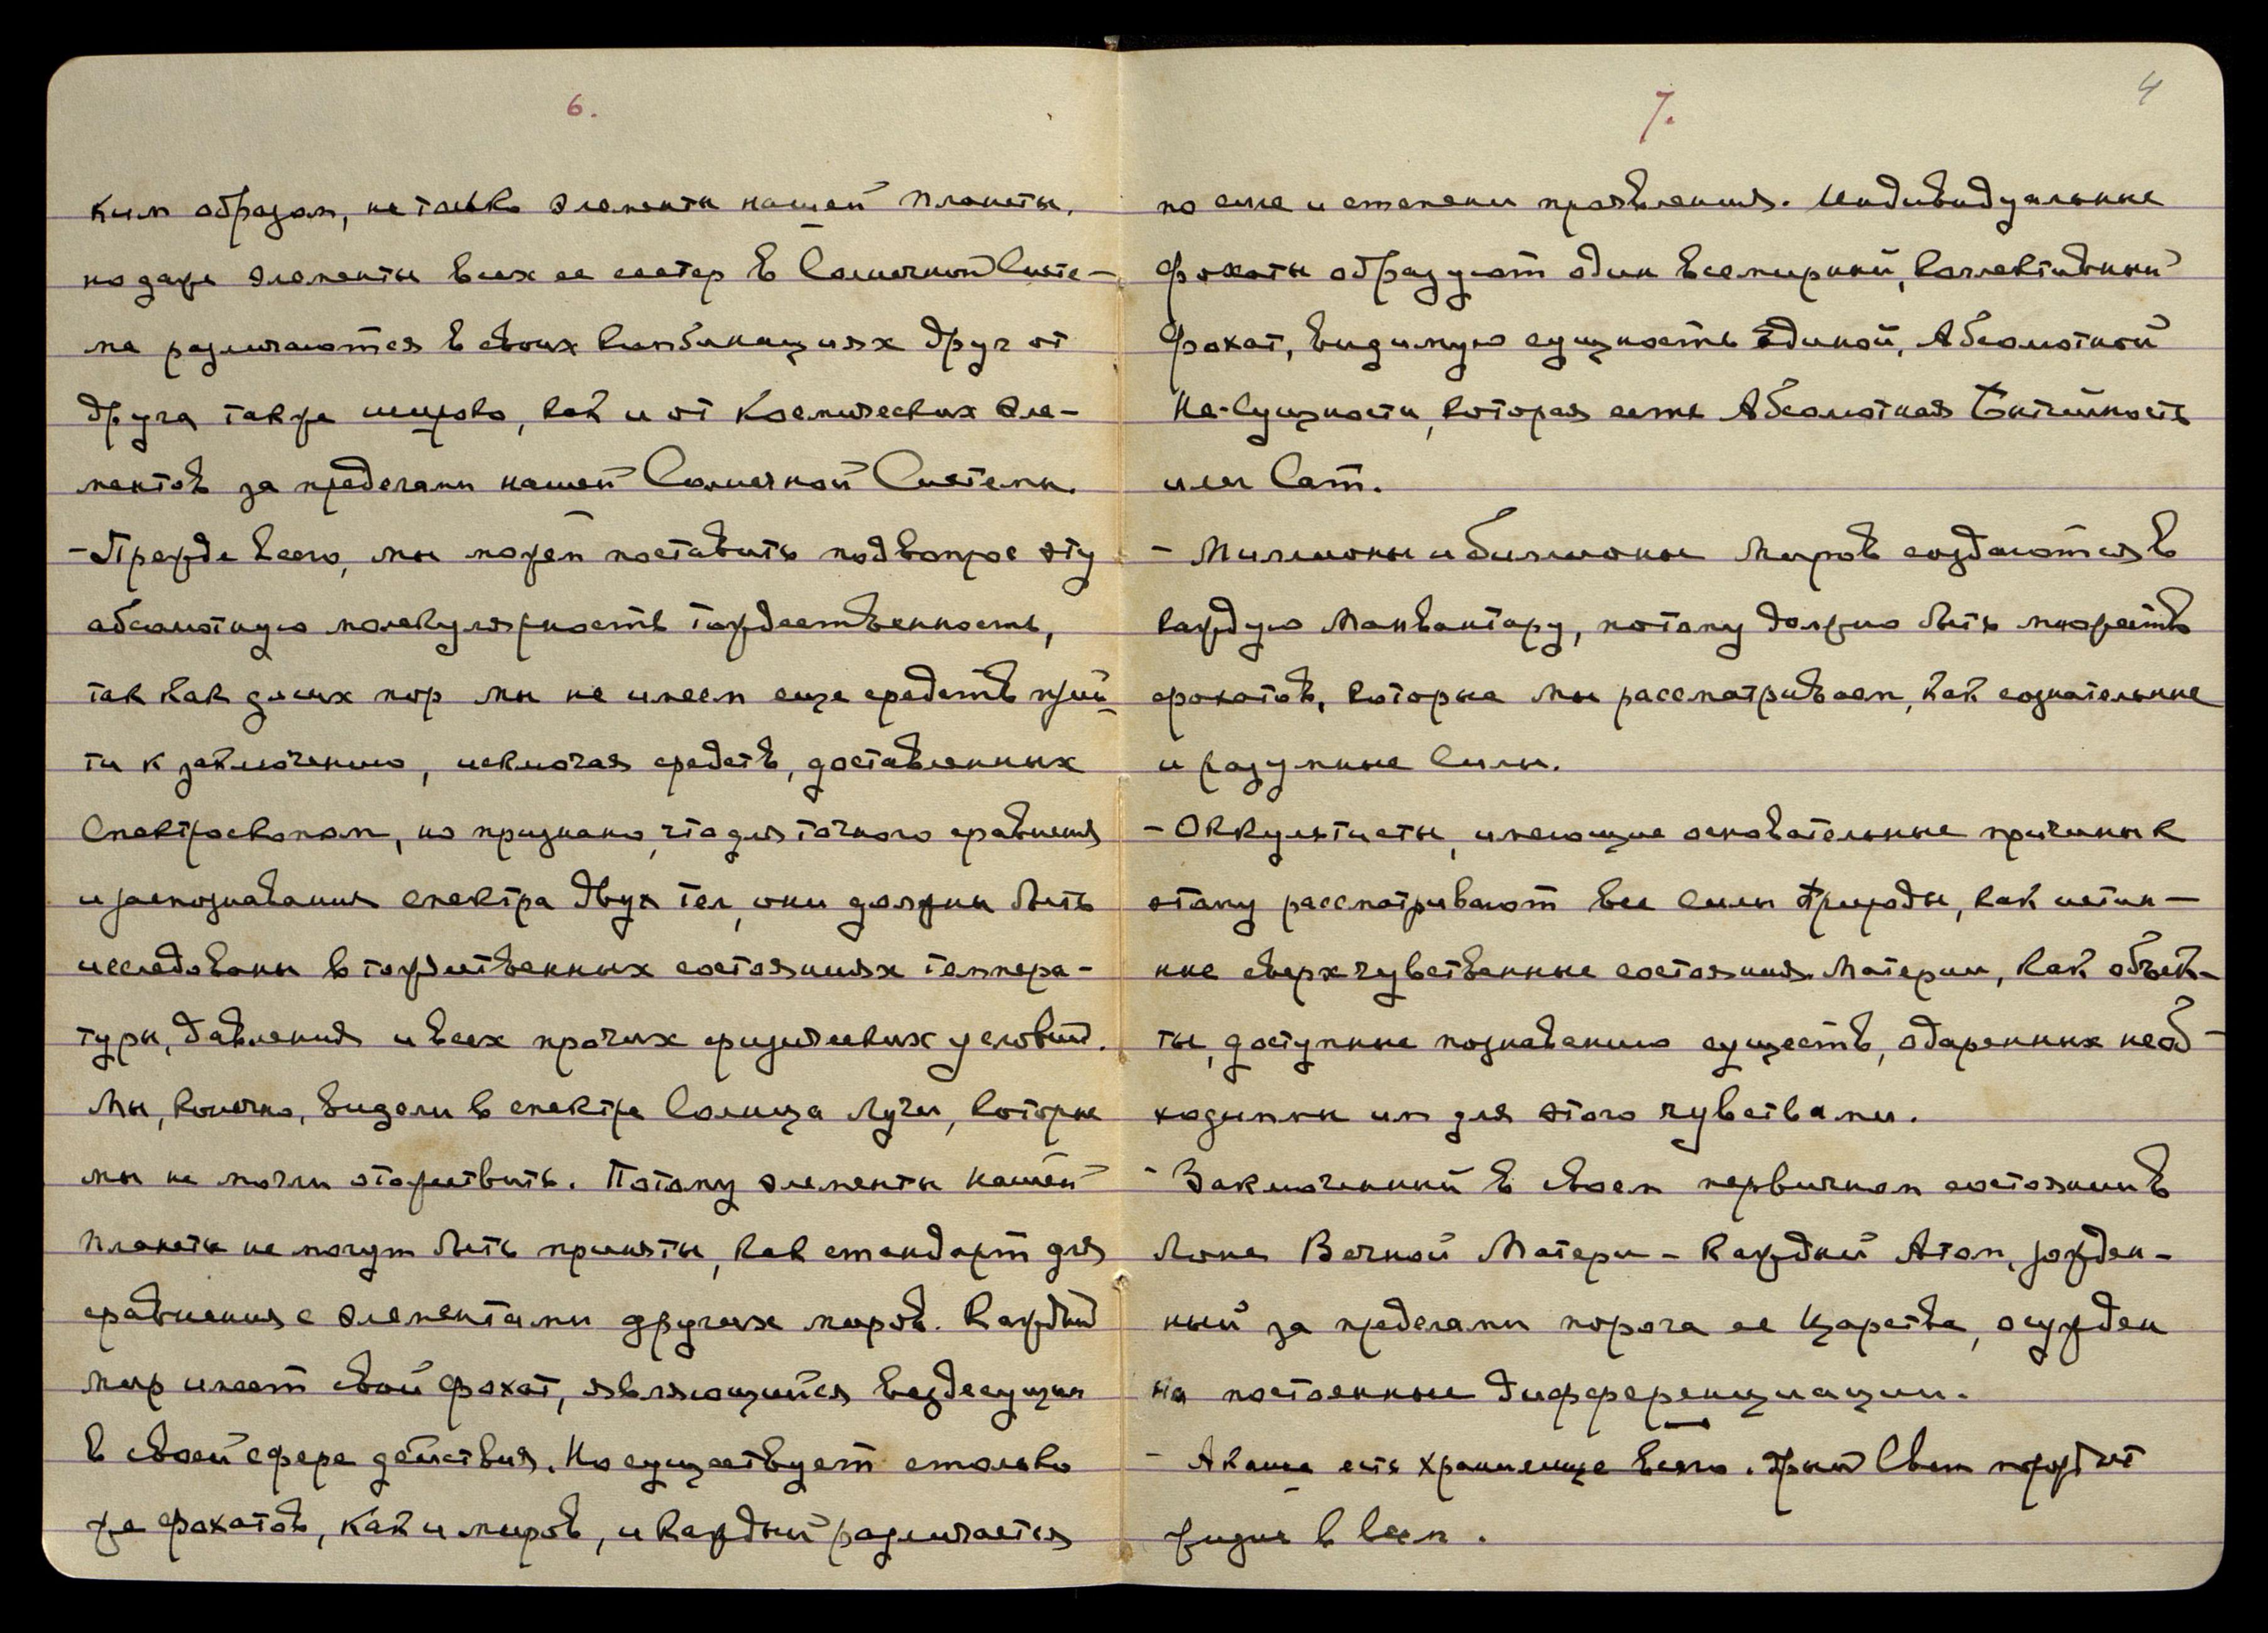 6.
ким образом, не только элементы нашей планеты,
но даже элементы всех ее сестер в Солнечной Систе-
ме различаются в своих комбинациях друг от
друга также широко, как и от Космических эле-
ментов за пределами нашей Солнечной Системы.
- Прежде всего, мы можем поставить под вопрос эту
абсолютную молекулярность тождественность,
так как до сих пор мы не имеем еще средств прий-
ти к заключению, исключая средств, доставленных
Спектроскопом, но признано, что для точного сравнения
и распознавания спектра двух тел, они должны быть
исследованы в тождественных состояниях темпера-
туры, давления и всех прочих физических условий.
Мы, конечно, видели в спектре Солнца Лучи, которые
мы не могли отожествить. Потому элементы нашей
планеты не могут быть приняты, как стандарт для
сравнения с элементами других миров. Каждый
мир имеет свой фохат, являющийся вездесущим
в своей сфере действия. Но существует столько
же фохатов, как и миров, и каждый различается
7.
4
по силе и степени проявления. Индивидуальные
Фохаты образуют один всемирный, коллективный
Фохат, видимую сущность Единой, Абсолютной
Не-Сущности, которая есть Абсолютная Бытийность
или Сат.
- Миллионы и биллионы Миров создаются в
каждую Манвантару, потому должно быть множеств
фохатов, которые мы рассматриваем, как сознательные
и разумные Силы.
- Оккультисты, имеющие основательные причины к
этому рассматривают все силы Природы, как истин-
ные сверхчувственные состояния Материи, как объек-
ты, доступные познаванию существ, одаренных необ-
ходимыми им для этого чувствами.
- Заключенный в своем первичном состоянии в
Лоне Вечной Матери - каждый Атом, рожден-
ный за пределами порога ее Царства, осужден
на постоянные дифференциации.
- Акаша есть хранилище всего. Яркий Свет порождает
жизнь в всем.